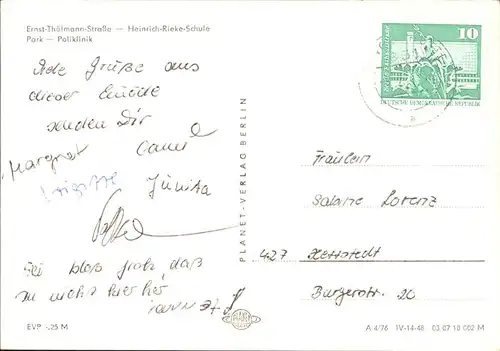 Ernst-Thälmann-Straße — Heinrich-Rieke-Schule
Park — Poliklinik
Grüße aus
dieser Einöde
senden Dir
Margret
Brigitte
Sei bloß froh, daß
Du nicht hier her
EVP -,25 M
PLANET-VERLAG BERLIN
10
DEUTSCHE DEMOKRATISCHE REPUBLIK
Fräulein
Lorenz
427 Hettstedt
Burgerstr. 20
A 4/76 IV-14-48 03 07 10 002 M